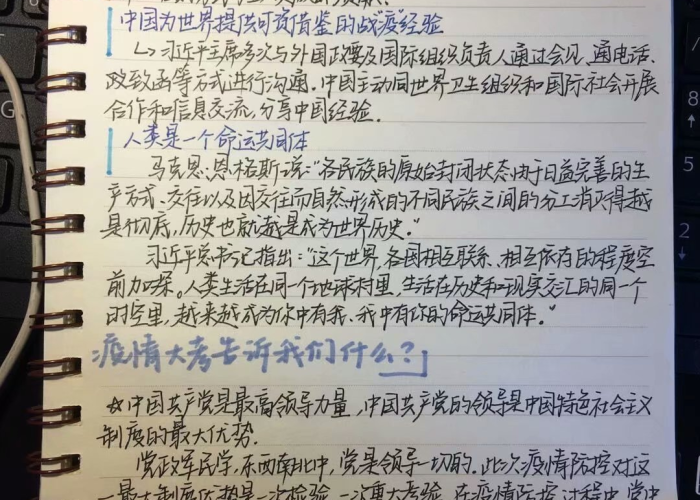 中国为世界提供可资借鉴的战"疫"经验
↳习近平主席多次与外国政要及国际组织负责人通过会见、通电话、
致函等方式进行沟通。中国主动同世界卫生组织和国际社会开展
合作和信息交流,分享中国经验.
人类是一个命运共同体
马克思、恩格斯说:"各民族的原始封闭状态由于日益完善的生
产方式、交往以及因交往而自然形成的不同民族之间的分工消灭得越
是彻底,历史也就越是成为世界历史。"
习近平总书记指出:"这个世界,各国相互联系、相互依存的程度空
前加深。人类生活在同一个地球村里,生活在历史和现实交汇的同一个
时空里,越来越成为你中有我、我中有你的命运共同体。"
疫情大考告诉我们什么?」
☆中国共产党是最高领导力量,中国共产党的领导是中国特色社会主义
制度的最大优势.
党政军民学,东西南北中,党是领导一切的.此次疫情防控对这
一最大制度优势是一次检验,一次重大考验,在疫情防控过程中,党中